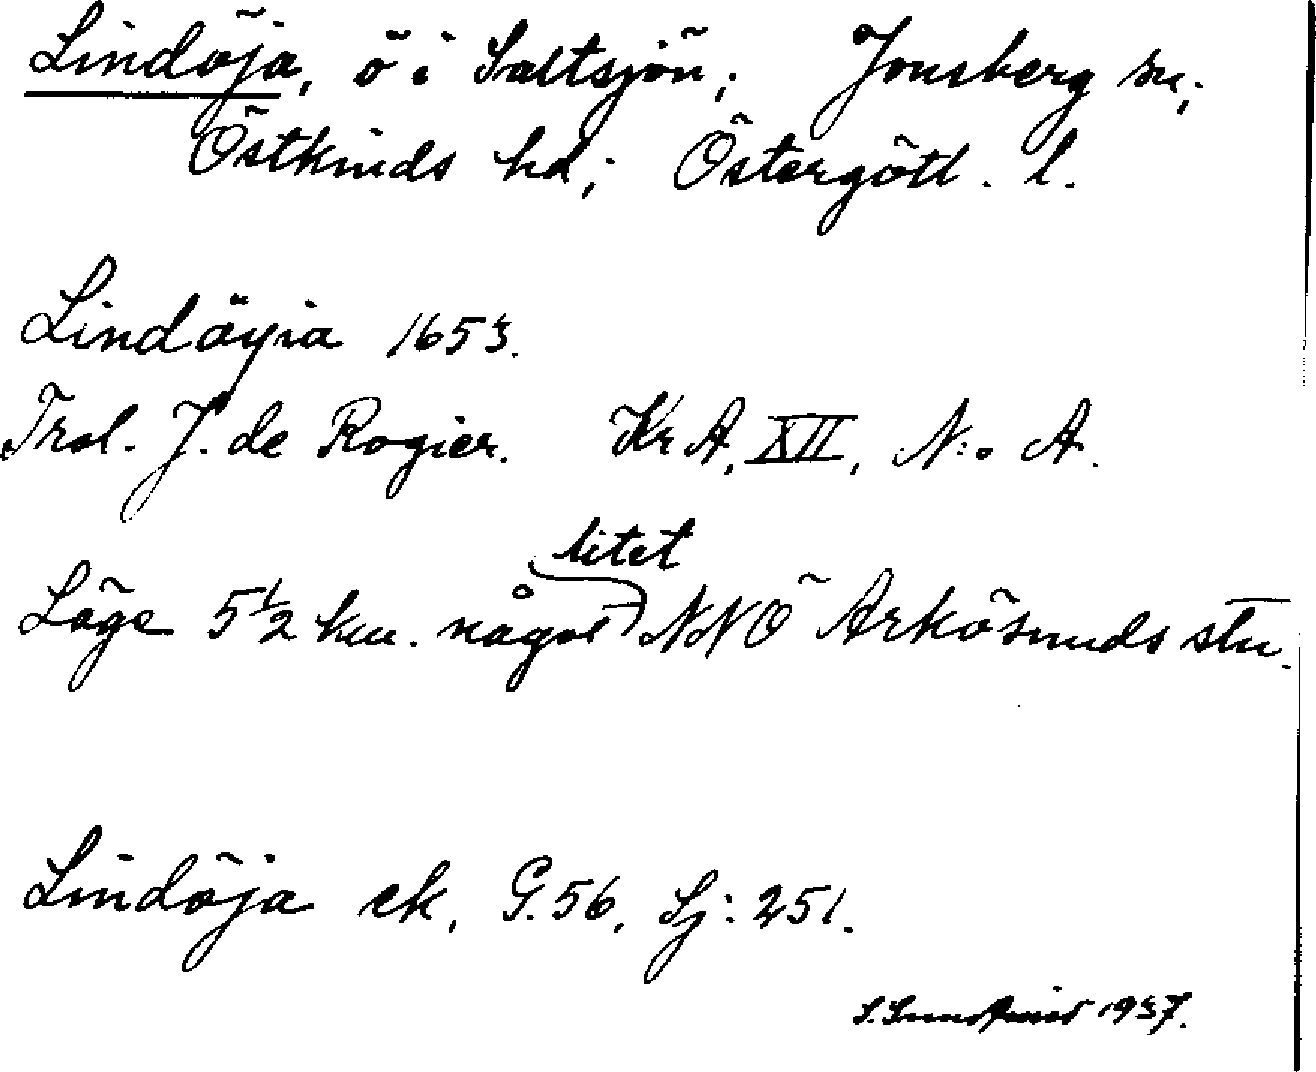 Lindöja, ö i Saltsjön; Jonsberg sn;
Östkinds hd; Östergötl. l.
Lindöyia 1653.
Trol. J. de Rogier. Kr A, XII, N:o A.
litet
Läge 5 1/2 km. något NNÖ Arkösunds stn.
Lindöja ek. G. 56, Sj: 251.
S. Sundqvist 1937.